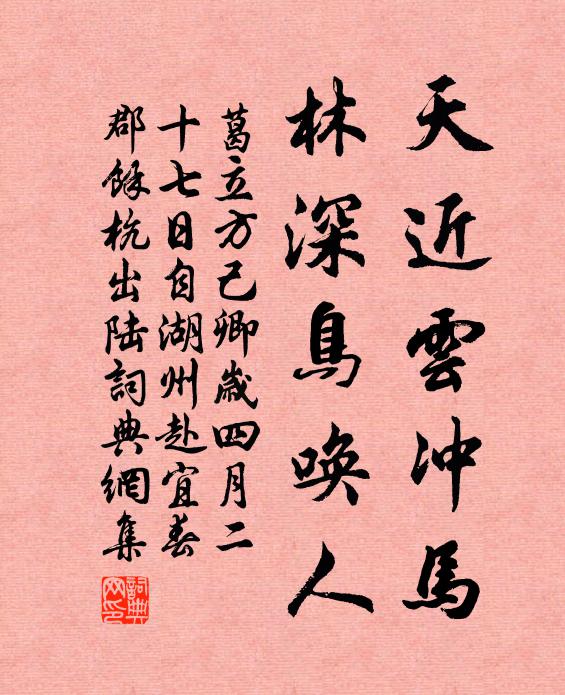 天近雲冲馬
林深鳥喚人
葛立方己卿歲四月二
十七日自湖州赴宜春
郡餘杭出陆詞典網集
詞典網印